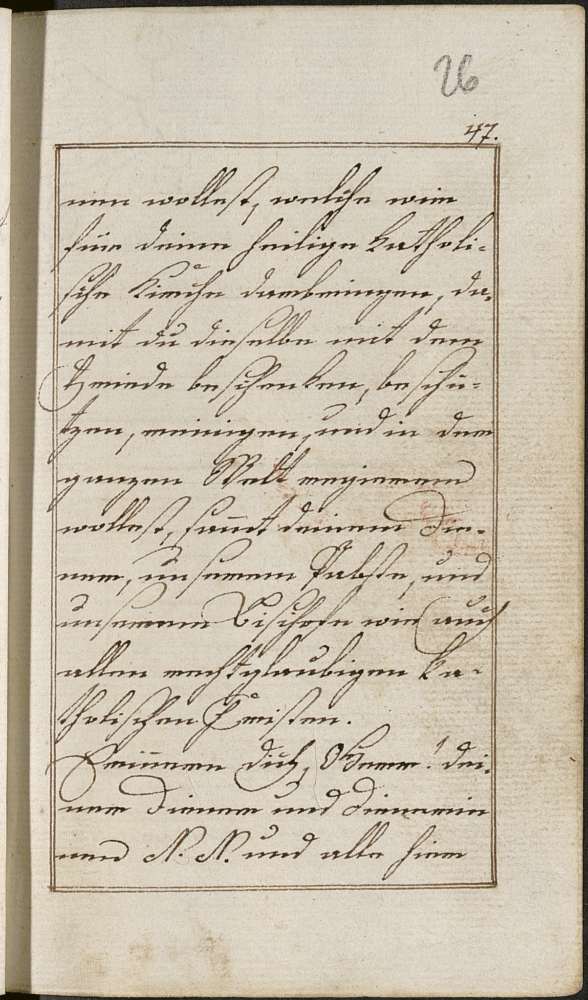 26
47.
nen wollest, welche wir
für deine heilige katholi-
sche Kirche darbringen, da-
mit du dieselbe mit dem
Friede beschenken, beschü-
tzen, reinigen, und in der
ganzen Welt regieren
wollest, samt deinem Die-
ner, unserem Pabste, und
unserem Bischofe wie auch
allen rechtglaubigen ka-
tholischen Christen.
Erinnere dich, O Herr! dei-
ner Diener und Dienerin
nen N. N. und alle hier